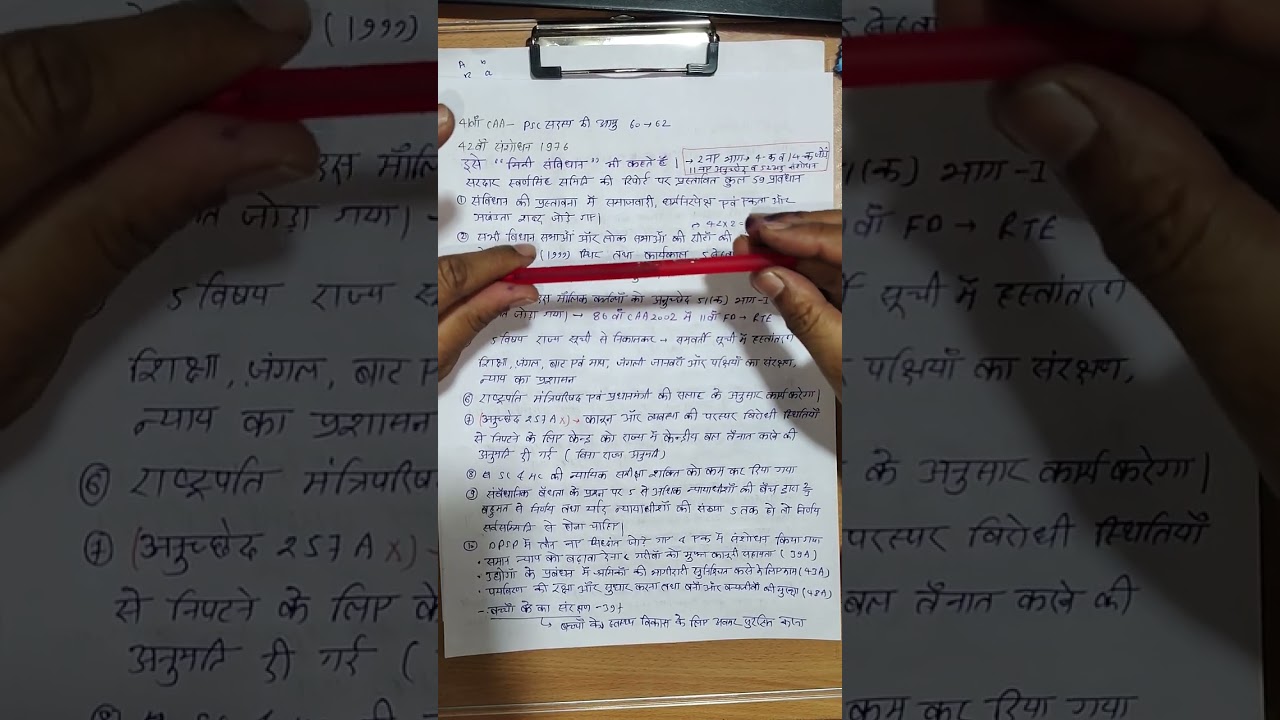 A b
R a
41वाँ CAA – PSC सदस्य की आयु 60→62
42वाँ संशोधन 1976
इसे "मिनी संविधान" भी कहते हैं। → 2 नए भाग → 4-क व 14-क जोड़े
11 नए अनुच्छेद व संशोधन
सरदार स्वर्णसिंह समिति की रिपोर्ट पर प्रस्तावित कुल 59 प्रावधान
① संविधान की प्रस्तावना में समाजवादी, धर्मनिरपेक्ष एवं एकता और
अखंडता शब्द जोड़े गए।
42x2=
② सभी विधान सभाओं और लोक सभाओं की सीटों की
(1999) स्थिर तथा कार्यकाल 5 से
दस मौलिक कर्तव्यों को अनुच्छेद 51(क) भाग-
जोड़ा गया) → 86 वाँ CAA 2002 में 11वाँ FD → RTE
5 विषय राज्य सूची से निकालकर → समवर्ती सूची में हस्तांतरण
शिक्षा, जंगल, बाट एवं माप, जंगली जानवरों और पक्षियों का संरक्षण,
न्याय का प्रशासन
⑥ राष्ट्रपति मंत्रिपरिषद एवं प्रधानमंत्री की सलाह के अनुसार कार्य करेगा।
⑦ (अनुच्छेद 257A X) → कानून और व्यवस्था की परस्पर विरोधी स्थितियों
से निपटने के लिए केन्द्र को राज्य में केन्द्रीय बल तैनात करने की
अनुमति दी गई (बिना राज्य अनुमति)
⑧ SC & HC की न्यायिक समीक्षा शक्ति को कम कर दिया गया
⑨ संवैधानिक वैधता के प्रश्न पर 5 से अधिक न्यायाधीशों की बेंच द्वारा 2/3
बहुमत से निर्णय तथा यदि न्यायाधीशों की संख्या 5 तक हो तो निर्णय
सर्वसम्मति से होना चाहिए।
⑩ DPSP में तीन नए सिद्धांत जोड़े गए & एक में संशोधन किया गया
• समान न्याय को बढ़ावा देना & गरीबों को मुफ्त कानूनी सहायता (39A)
• उद्योगों के प्रबंधन में श्रमिकों की भागीदारी सुनिश्चित करने के लिए काम (43A)
• पर्यावरण की रक्षा और सुधार करना तथा वनों और वन्यजीवों की सुरक्षा (48A)
- बच्चों के का संरक्षण -39f
↳ बच्चों के स्वस्थ विकास के लिए अवसर सुरक्षित करना